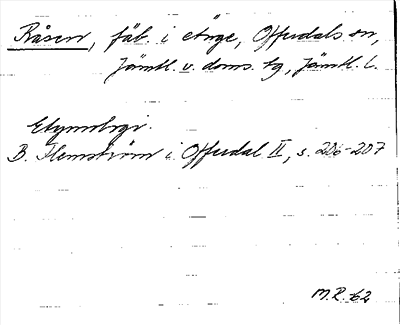 Råsen, fäb. i Änge, Offerdals sn,
Jämtl. v. doms. tg, Jämtl. l.
Etymologi.
B. Flemström i Offerdal II, s. 206-207
M.R. 62